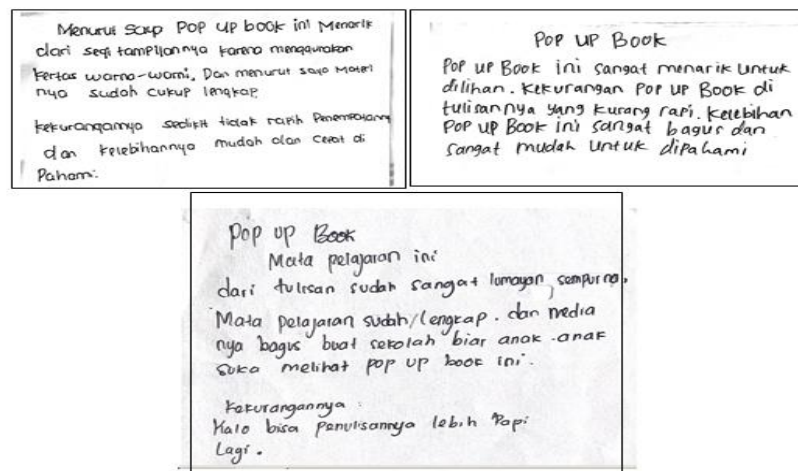 Menurut saya POP UP book ini Menarik
dari segi tampilannya karena menggunakan
kertas warna-warni, Dan menurut saya Materi
nya sudah cukup lengkap
kekurangannya sedikit tidak rapih
dan kelebihannya mudah dan cepat di
Pahami.
POP UP BOOK
POP UP BOOK ini sangat menarik untuk
dilihan. Kekurangan POP UP BOOK di
tulisannya yang kurang rapi. Kelebihan
POP UP BOOK ini sangat bagus dan
sangat mudah untuk dipahami
Pop up Book
Mata pelajaran ini
dari tulisan sudah sangat lumayan, sempurna.
Mata pelajaran sudah/lengkap. dan media
nya bagus buat sekolah biar anak-anak
suka melihat pop up book ini.
Kekurangannya :
Kalo bisa penulisannya lebih Rapi
Lagi.